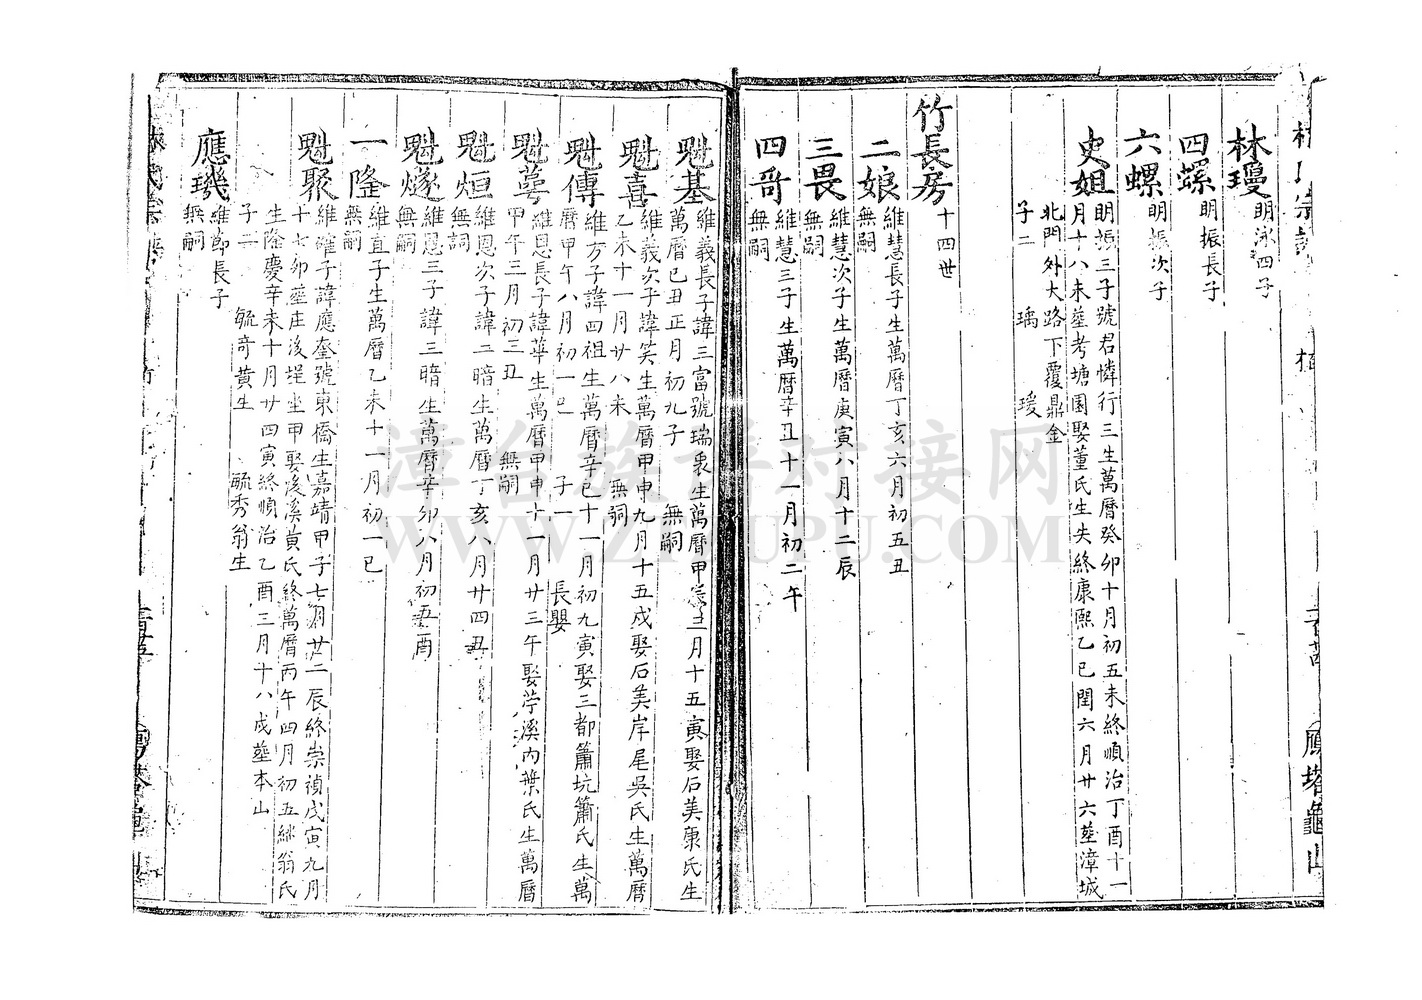 林瓊
明泳四子
四螺
明振長子
六螺
明振次子
史姐
明振三子號君憐行三生萬曆癸卯十月初五未終順治丁酉十一
月十八未塟考塘園娶董氏生失終康熙乙巳閏六月廿六塟漳城
北門外大路下覆鼎金
子二 瑀 瑗
竹長房
十四世
二娘
維慧長子生萬曆丁亥六月初五丑
無嗣
三畏
維慧次子生萬曆庚寅八月十二辰
無嗣
四哥
維慧三子生萬曆辛丑十一月初二午
無嗣
魁基
維義長子諱三富號瑞裊生萬曆甲辰三月十五寅娶石美康氏生
萬曆己丑正月初九子 無嗣
魁喜
維義次子諱笑生萬曆甲申九月十五戌娶石美岸尾吳氏生萬曆
乙未十一月廿八未 無嗣
魁傳
維方子諱四祖生萬曆辛巳十一月初九寅娶三都簫坑簫氏生萬
曆甲午八月初一巳 子一 長嬰
魁萼
維恩長子諱華生萬曆甲申十一月廿三午娶苧溪內葉氏生萬曆
甲午三月初三丑 無嗣
魁烜
維恩次子諱二暗生萬曆丁亥八月廿四丑
無嗣
魁燧
維恩三子諱三暗生萬曆辛卯八月初五酉
無嗣
一隆
維直子生萬曆乙未十一月初一巳
無嗣
魁聚
維確子諱應奎號東橋生嘉靖甲子七月廿二辰終崇禎戊寅九月
十七卯塟庄後埕坐甲娶溪溪黃氏終萬曆丙午四月初五繼翁氏
生隆慶辛未十月廿四寅終順治乙酉三月十八戌塟本山
子二 毓奇黃生 毓秀翁生
應璣
維節長子
無嗣
漳台族谱对接网
WWW.ZTZUPU.COM